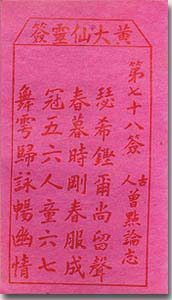 黃大仙靈簽
第七十八簽
古人 曾點論志
瑟希鏗爾尚留聲
春暮時剛春服成
冠五六人童六七
舞雩歸詠暢幽情